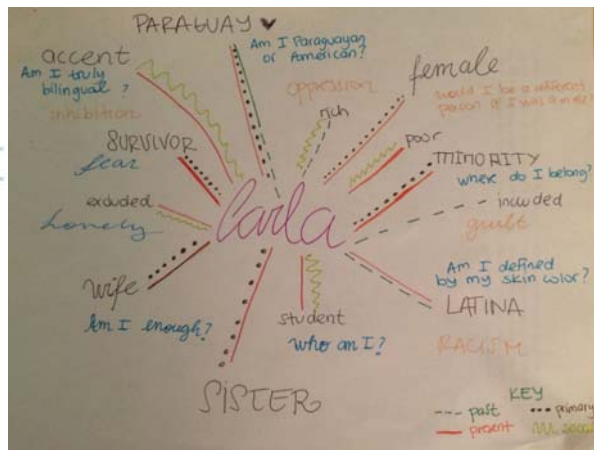 PARAGUAY
accent
Am I Paraguayan
or American?
Am I truly
bilingual?
inhibition
oppression
rich
female
would I be a different
person if I was a male?
SURVIVOR
fear
poor
MINORITY
where do I belong?
excluded
lonely
Carla
included
guilt
wife
Am I enough?
Am I defined
by my skin color?
LATINA
RACISM
student
who am I?
SISTER
KEY
past
primary
present